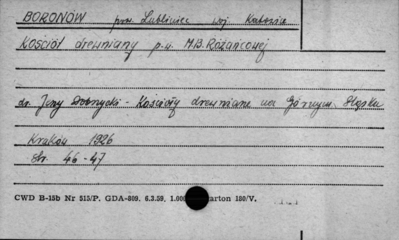 BORONÓW pow. Lubliniec woj. Katowice
Kościół drewniany p.w. M.B. Różańcowej
dr. Jerzy Dobrzycki - Kościoły drewniane na Górnym Śląsku
Kraków 1926
str. 46-47
CWD B-15b Nr 515/P. GDA-809. 6.3.59. 1.000 karton 180/V.